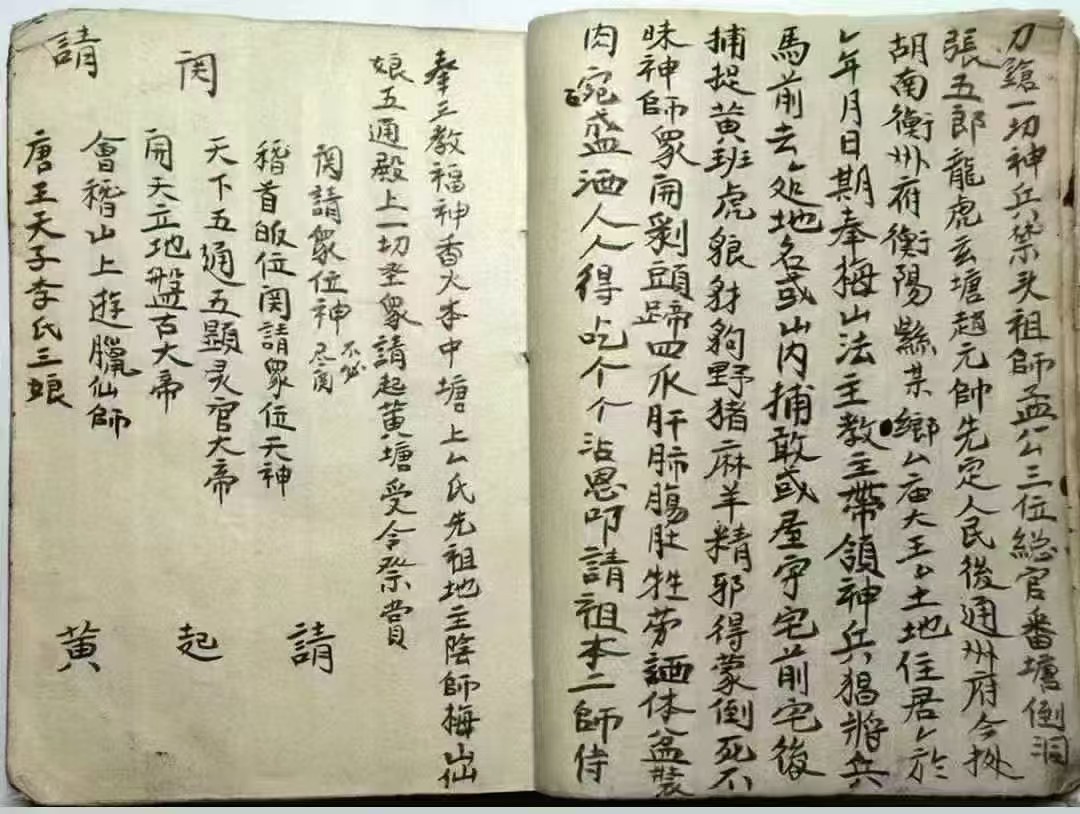 刀鎗一切神兵祭头祖師孟公三位総官番壇倒洞
張五郎龍虎玄塘趙元帥先定人民後通州府今拠
胡南衡州府衡陽縣某鄉厶庙大王厶土地住居厶於
厶年月日期奉梅山法主教主帶領神兵猖將兵
馬前去厶処地名或山内捕敢或屋宇宅前宅後
捕捉黄班虎狼豺狗野猪麻羊精邪得蒙倒死不
昧神師衆開剝頭蹄四爪肝肺腸肚牲劳䤄体盆裝
肉碗盛酒人人得吃个个沾恩叩請祖本二師侍
奉三教福神香火本中塘上厶氏先祖地主陰師梅山仙
娘五通殿上一切圣衆請起黄塘受令祭賞
関請衆位神 不必尽関
稽首皈位関請衆位天神
天下五通五顯灵官大帝
開天立地盤古大帝
會稽山上遊獵仙師
唐王天子李氏三娘
関
請
請
起
黄